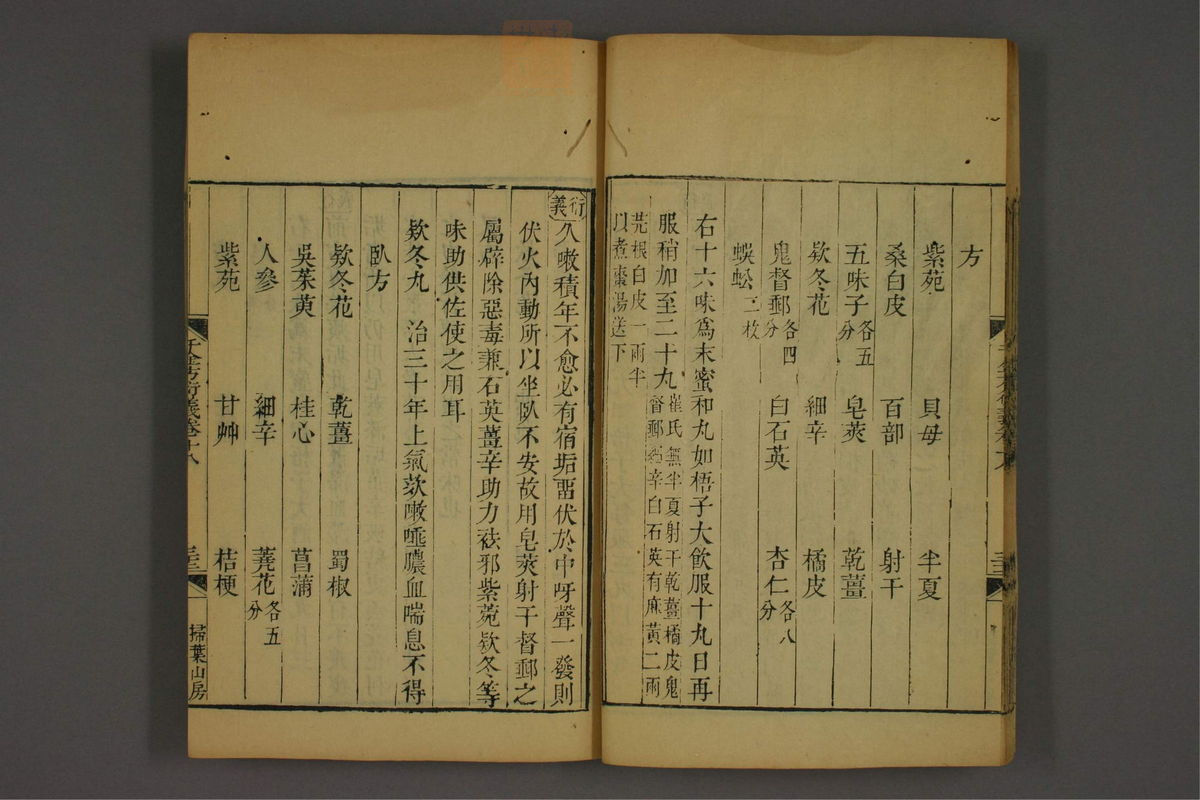 方
紫菀　貝母　半夏
桑白皮　百部　射干
五味子各五分　皂莢　乾薑
欵冬花　細辛　橘皮
鬼督郵各四分　白石英　杏仁各八分
蜈蚣二枚
右十六味爲末蜜和丸如梧子大飲服十丸日再
服稍加至二十丸崔氏無半夏射干乾薑橘皮鬼
督郵細辛白石英有麻黃二兩
芫根白皮一兩半
以煮棗湯送下
衍義
久嗽積年不愈必有宿垢畱伏於中呀聲一發則
伏火內動所以坐臥不安故用皂莢射干督郵之
屬辟除惡毒兼石英薑辛助力祛邪紫菀欵冬等
味助供佐使之用耳
欵冬丸　治三十年上氣欬嗽唾膿血喘息不得
臥方
欵冬花　乾薑　蜀椒
吳茱萸　桂心　菖蒲
人參　細辛　蕘花各五分
紫菀　甘艸　桔梗
千金方衍義卷十八
三十三
掃葉山房